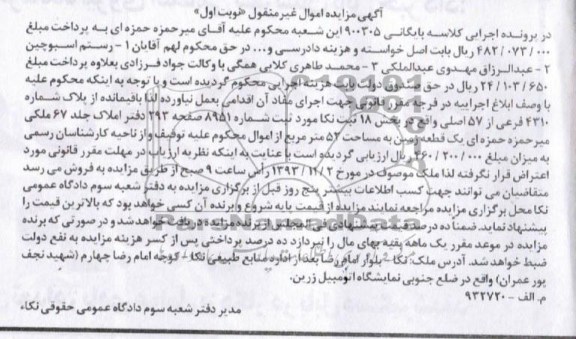 آگهی مزایده اموال غیر منقول «نوبت اول»
در پرونده اجرایی کلاسه بایگانی ۹۰۰۳۰۵ این شعبه محکوم علیه آقای میرحمزه حمزه ای به پرداخت مبلغ
۴۸۲/۰۷۳/۰۰۰ ریال بابت اصل خواسته و هزینه دادرسی و... در حق محکوم لهم آقایان ۱- رستم اسبوچین
۲- عبدالرزاق مهدوی عبدالملکی ۳- محمد طاهری کلایی همگی با وکالت جواد فرزادی بعلاوه پرداخت مبلغ
۲۴/۱۰۳/۶۵۰ ریال در حق صندوق دولت بابت هزینه اجرایی محکوم گردیده است و با توجه به اینکه محکوم علیه
با وصف ابلاغ اجراییه در فرجه مقرر قانونی جهت اجرای مفاد آن اقدامی بعمل نیاورده لذا باقیمانده از پلاک شماره
۴۳۱۰ فرعی از ۵۷ اصلی واقع در بخش ۱۸ ثبت نکا مورد ثبت شماره ۸۹۵۱ صفحه ۲۹۳ دفتر املاک جلد ۶۷ ملکی
میرحمزه حمزه ای یک قطعه زمین به مساحت ۵۷ متر مربع از اموال محکوم علیه توقیف و از ناحیه کارشناسان رسمی
به میزان مبلغ ۳۶۰/۲۰۰/۰۰۰ ریال ارزیابی گردیده است با عنایت به اینکه نظریه ارزیاب در مهلت مقرر قانونی مورد
اعتراض قرار نگرفته لذا ملک موصوف در مورخ ۱۳۹۳/۱۲/۲ راس ساعت ۹ صبح از طریق مزایده به فروش می رسد
متقاضیان می توانند جهت کسب اطلاعات بیشتر پنج روز قبل از برگزاری مزایده به دفتر شعبه سوم دادگاه عمومی
نکا محل برگزاری مزایده مراجعه نمایند مزایده از قیمت پایه شروع و برنده آن کسی خواهد بود که بالاترین قیمت را
پیشنهاد نماید. ضمنا ده درصد قیمت پیشنهادی فی المجلس از برنده مزایده دریافت خواهد شد و در صورتی که برنده
مزایده در موعد مقرر یک ماهه بقیه بهای مال را نپردازد ده درصد پرداختی پس از کسر هزینه مزایده به نفع دولت
ضبط خواهد شد. آدرس ملک: نکا - بلوار امام رضا بعد از اداره منابع طبیعی نکا - کوچه امام رضا چهارم (شهید نجف
پور عمران) واقع در ضلع جنوبی نمایشگاه اتومبیل زرین.
م. الف - ۹۳۲۷۲۰
مدیر دفتر شعبه سوم دادگاه عمومی حقوقی نکاء